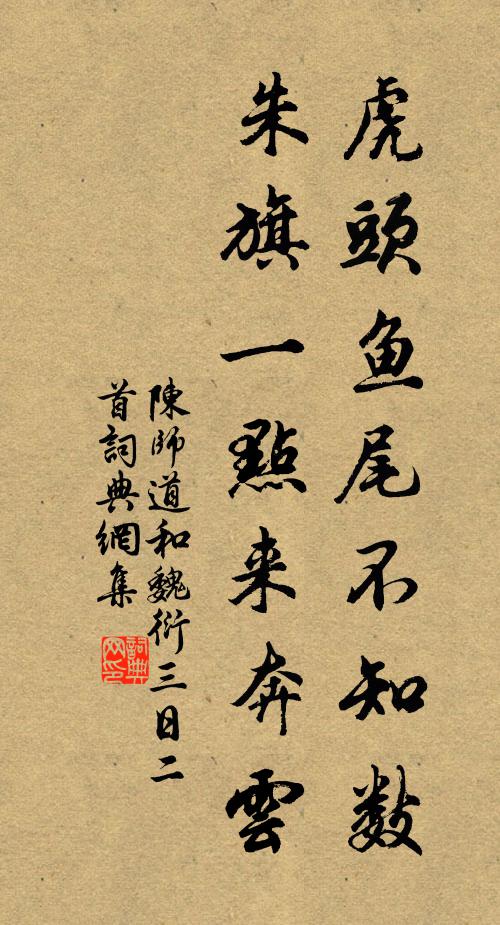 虎頭鱼尾不知數
朱旗一點来奔雲
陳師道和魏衍三日二
首詞典網集
詞典网印